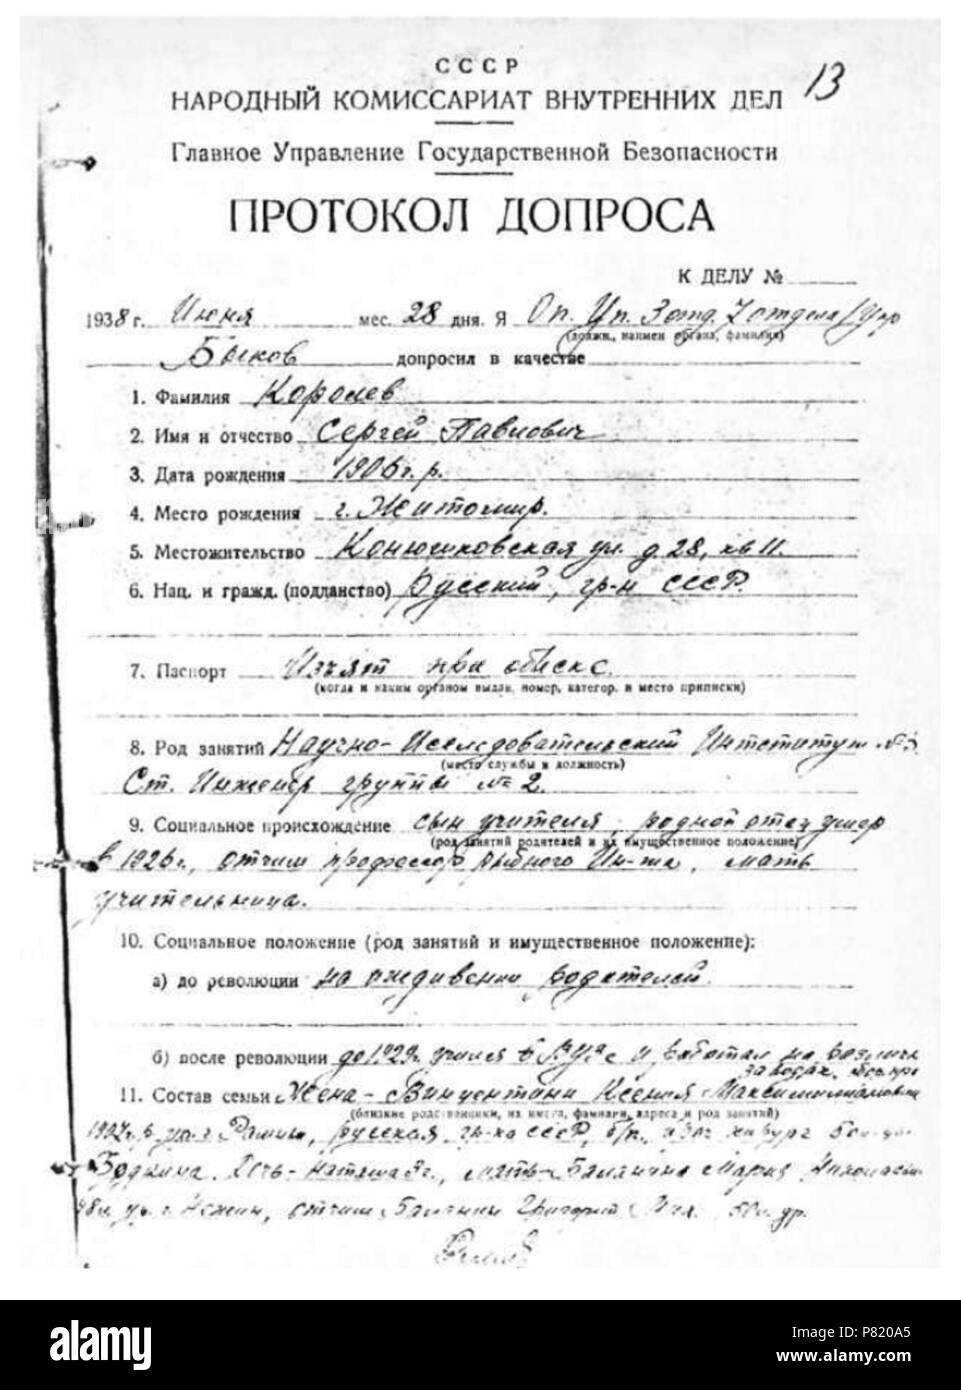 СССР
13
НАРОДНЫЙ КОМИССАРИАТ ВНУТРЕННИХ ДЕЛ
Главное Управление Государственной Безопасности
ПРОТОКОЛ ДОПРОСА
К ДЕЛУ №
1938 г. Июня мес. 28 дня. Я Оп. Уп. 3 отд. 7 отдела
(должн., наимен органа, фамилия)
Быков допросил в качестве
1. Фамилия Королев
2. Имя и отчество Сергей Павлович
3. Дата рождения 1906 г. р.
4. Место рождения г. Житомир.
5. Местожительство Конюшковская ул. д. 28, кв 11.
6. Нац. и гражд. (подданство) Русский, гр-н СССР.
7. Паспорт Изъят при обыске.
(когда и каким органом выдан, номер, категор. и место приписки)
8. Род занятий Научно-Исследовательский Институт №3
(место службы и должность)
Ст. Инженер группы № 2.
9. Социальное происхождение сын учителя, родной отец умер
(род занятий родителей и их имущественное положение)
в 1926 г., отчим профессор рыбного Ин-та, мать
учительница.
10. Социальное положение (род занятий и имущественное положение):
а) до революции на иждивении родителей.
б) после революции до 1929 г. учился в ВУЗ'е и работал на различн
заводах,
11. Состав семьи Жена - Винцентини Ксения Максимилиановна
(близкие родственники, их имена, фамилии, адреса и род занятий)
1907 г. р. ур. г. русская, гр-ка СССР, б/п., хирург
Боткина. Дочь - Наташа 3 г., мать - Баланина Мария Николаевн
ур. г. Нежин, отчим Баланин Григорий Мих.
alamy
alamy
Image ID: P820A5
www.alamy.com